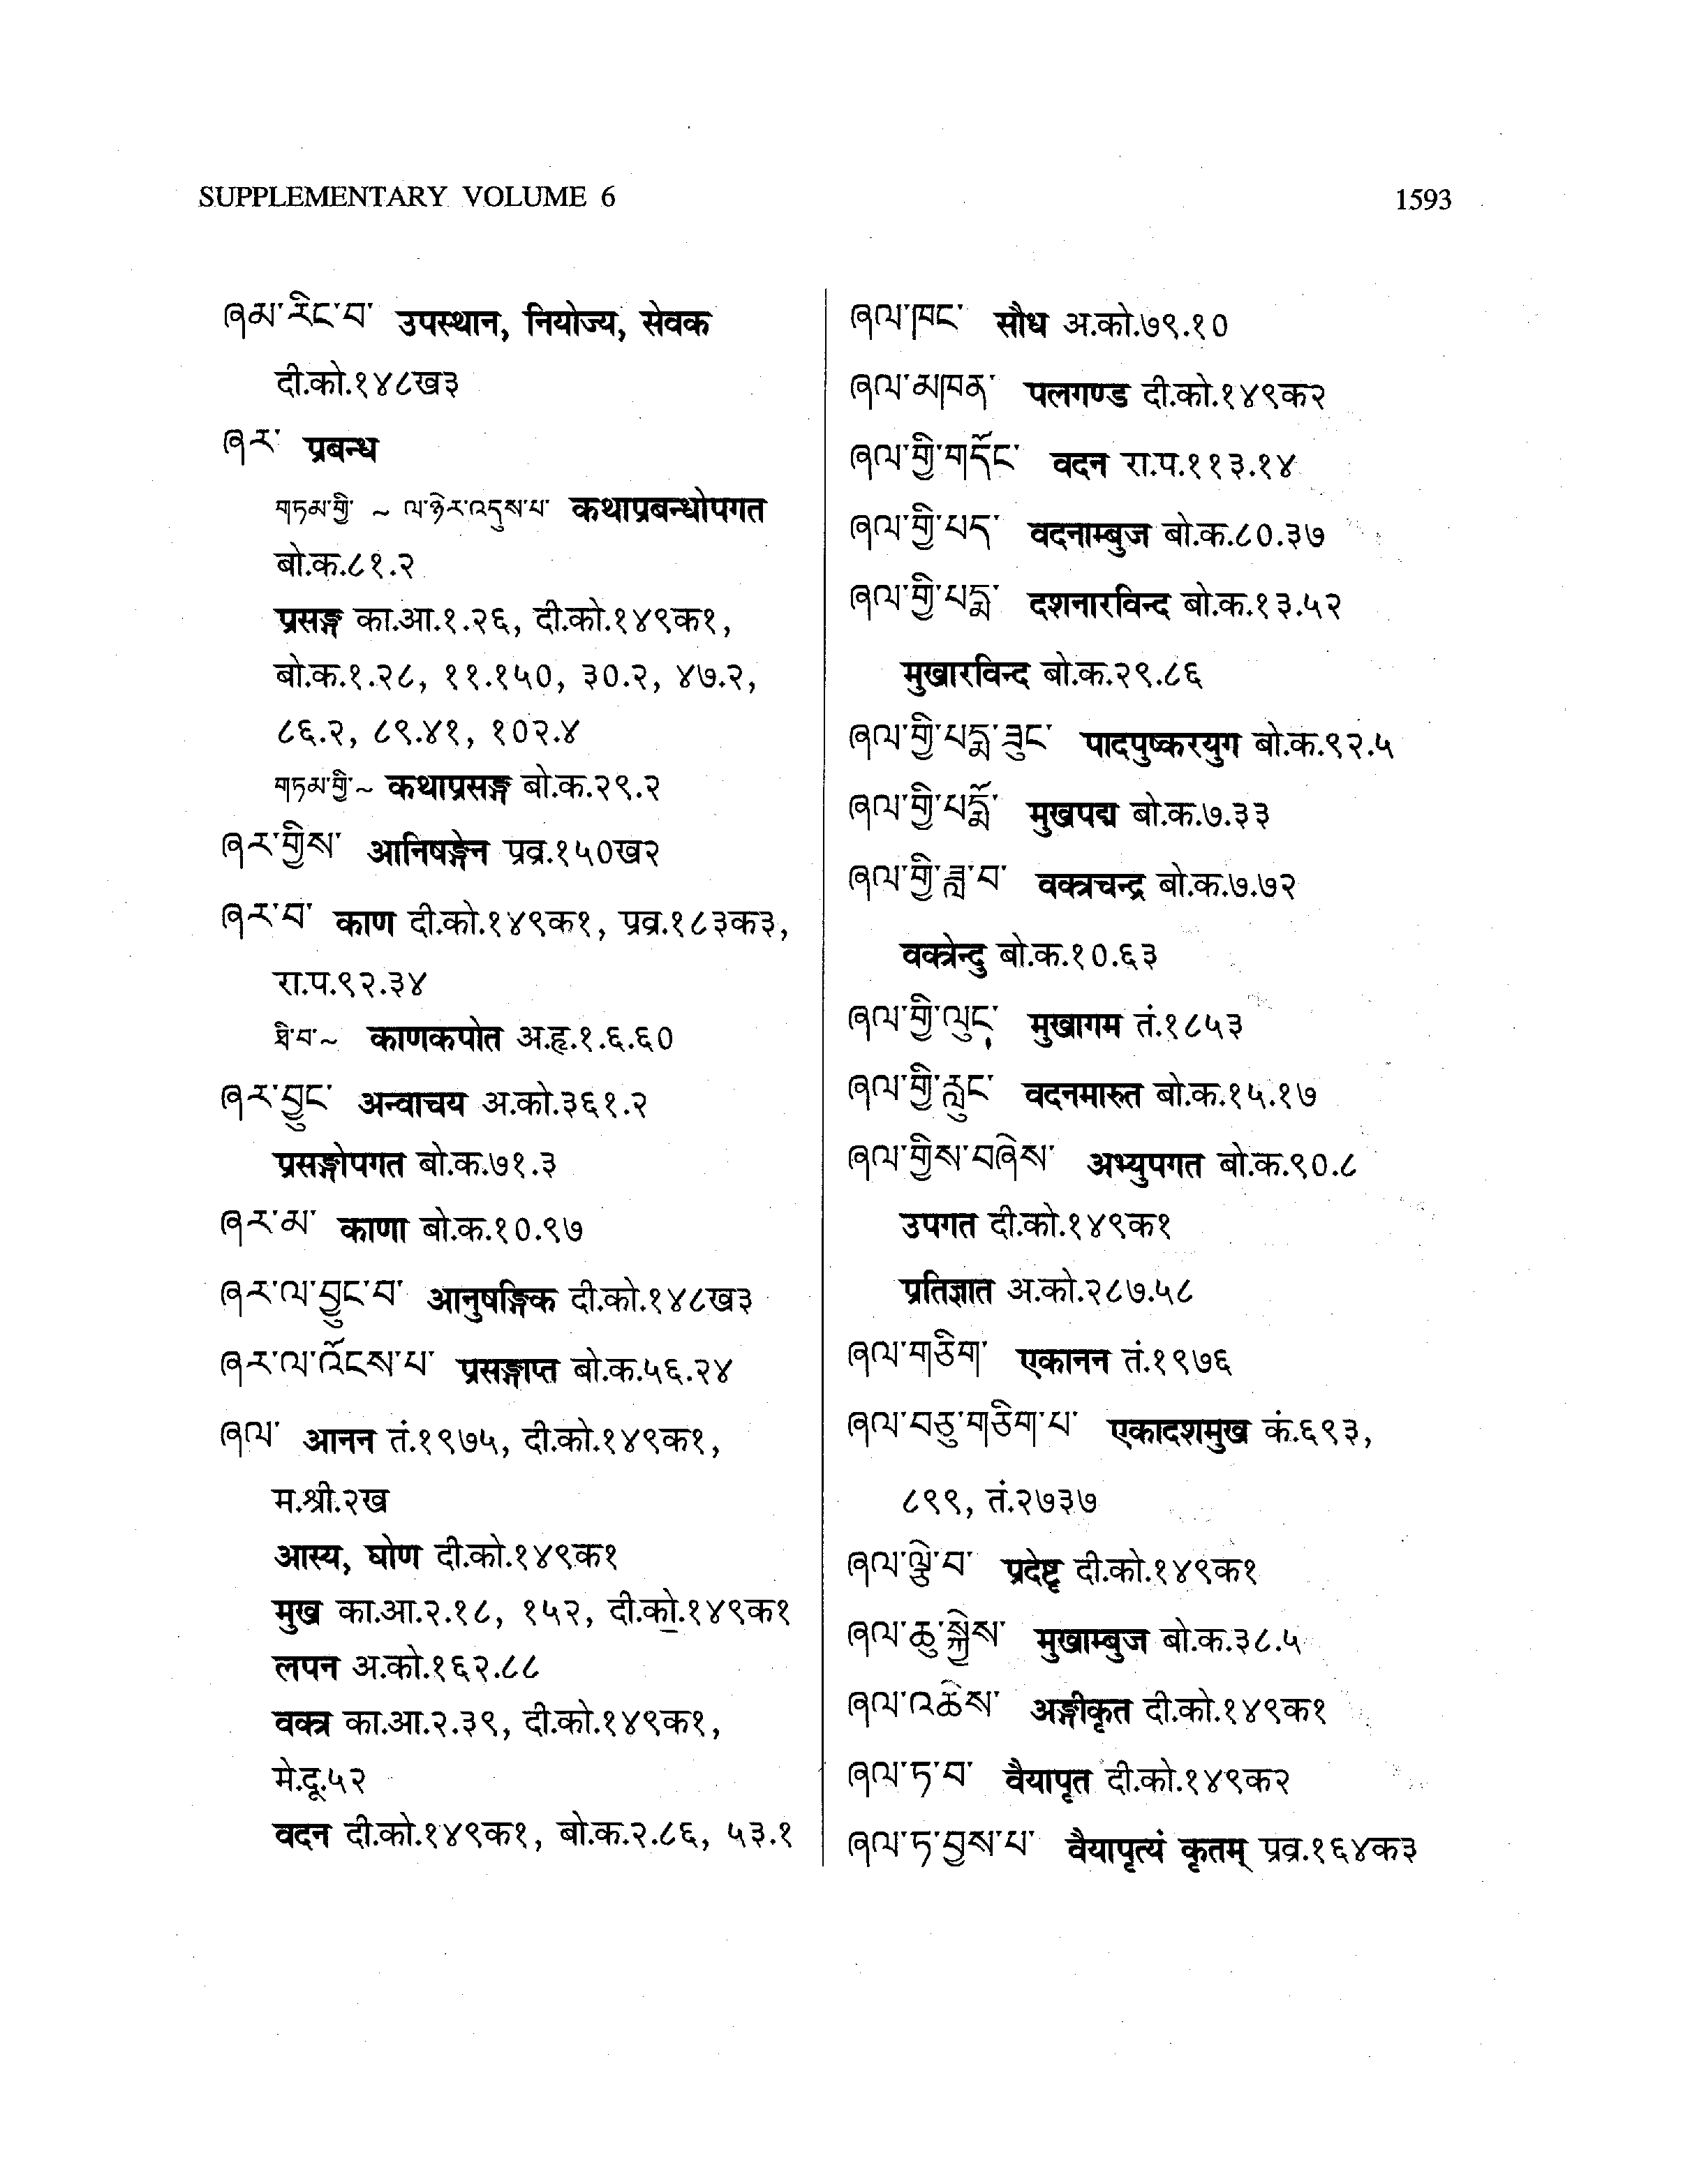 SUPPLEMENTARY VOLUME 6
1593
ཞམ་རིང་བ་ उपस्थान, नियोज्य, सेवक
दी.को.१४८ख३
ཞར་ प्रबन्ध
གཏམ་གྱི་ ~ ལ་ཉེར་འདུས་པ་ कथाप्रबन्धोपगत
बो.क.८१.२
प्रसङ्ग का.आ.१.२६, दी.को.१४९क१,
बो.क.१.२८, ११.१५०, ३०.२, ४७.२,
८६.२, ८९.४१, १०२.४
གཏམ་གྱི་~ कथाप्रसङ्ग बो.क.२९.२
ཞར་གྱིས་ आनिषङ्गेन प्रव्र.१५०ख२
ཞར་བ་ काण दी.को.१४९क१, प्रव्र.१८३क३,
रा.प.९२.३४
ཐི་བ་~ काणकपोत अ.हृ.१.६.६०
ཞར་བྱུང་ अन्वाचय अ.को.३६१.२
प्रसङ्गोपगत बो.क.७१.३
ཞར་མ་ काणा बो.क.१०.९७
ཞར་ལ་བྱུང་བ་ आनुषङ्गिक दी.को.१४८ख३
ཞར་ལ་འོངས་པ་ प्रसङ्गाप्त बो.क.५६.२४
ཞལ་ आनन तं.१९७५, दी.को.१४९क१,
म.श्री.२ख
आस्य, घोण दी.को.१४९क१
मुख का.आ.२.१८, १५२, दी.को.१४९क१
लपन अ.को.१६२.८८
वक्त्र का.आ.२.३९, दी.को.१४९क१,
मे.दू.५२
वदन दी.को.१४९क१, बो.क.२.८६, ५३.१
ཞལ་ཁང་ सौध अ.को.७९.१०
ཞལ་མཁན་ पलगण्ड दी.को.१४९क२
ཞལ་གྱི་གདོང་ वदन रा.प.११३.१४
ཞལ་གྱི་པད་ वदनाम्बुज बो.क.८०.३७
ཞལ་གྱི་པདྨ་ दशनारविन्द बो.क.१३.५२
मुखारविन्द बो.क.२९.८६
ཞལ་གྱི་པདྨ་ཟུང་ पादपुष्करयुग बो.क.९२.५
ཞལ་གྱི་པདྨོ་ मुखपद्म बो.क.७.३३
ཞལ་གྱི་ཟླ་བ་ वक्त्रचन्द्र बो.क.७.७२
वक्त्रेन्दु बो.क.१०.६३
ཞལ་གྱི་ལུང་ मुखागम तं.१८५३
ཞལ་གྱི་རླུང་ वदनमारुत बो.क.१५.१७
ཞལ་གྱིས་བཞེས་ अभ्युपगत बो.क.९०.८
उपगत दी.को.१४९क१
प्रतिज्ञात अ.को.२८७.५८
ཞལ་གཅིག་ एकानन तं.१९७६
ཞལ་བཅུ་གཅིག་པ་ एकादशमुख कं.६९३,
८९९, तं.२७३७
ཞལ་ལྕེ་བ་ प्रदेष्टृ दी.को.१४९क१
ཞལ་ཆུ་སྐྱེས་ मुखाम्बुज बो.क.३८.५
ཞལ་འཆེས་ अङ्गीकृत दी.को.१४९क१
ཞལ་ཏ་བ་ वैयापृत दी.को.१४९क२
ཞལ་ཏ་བྱས་པ་ वैयापृत्यं कृतम् प्रव्र.१६४क३